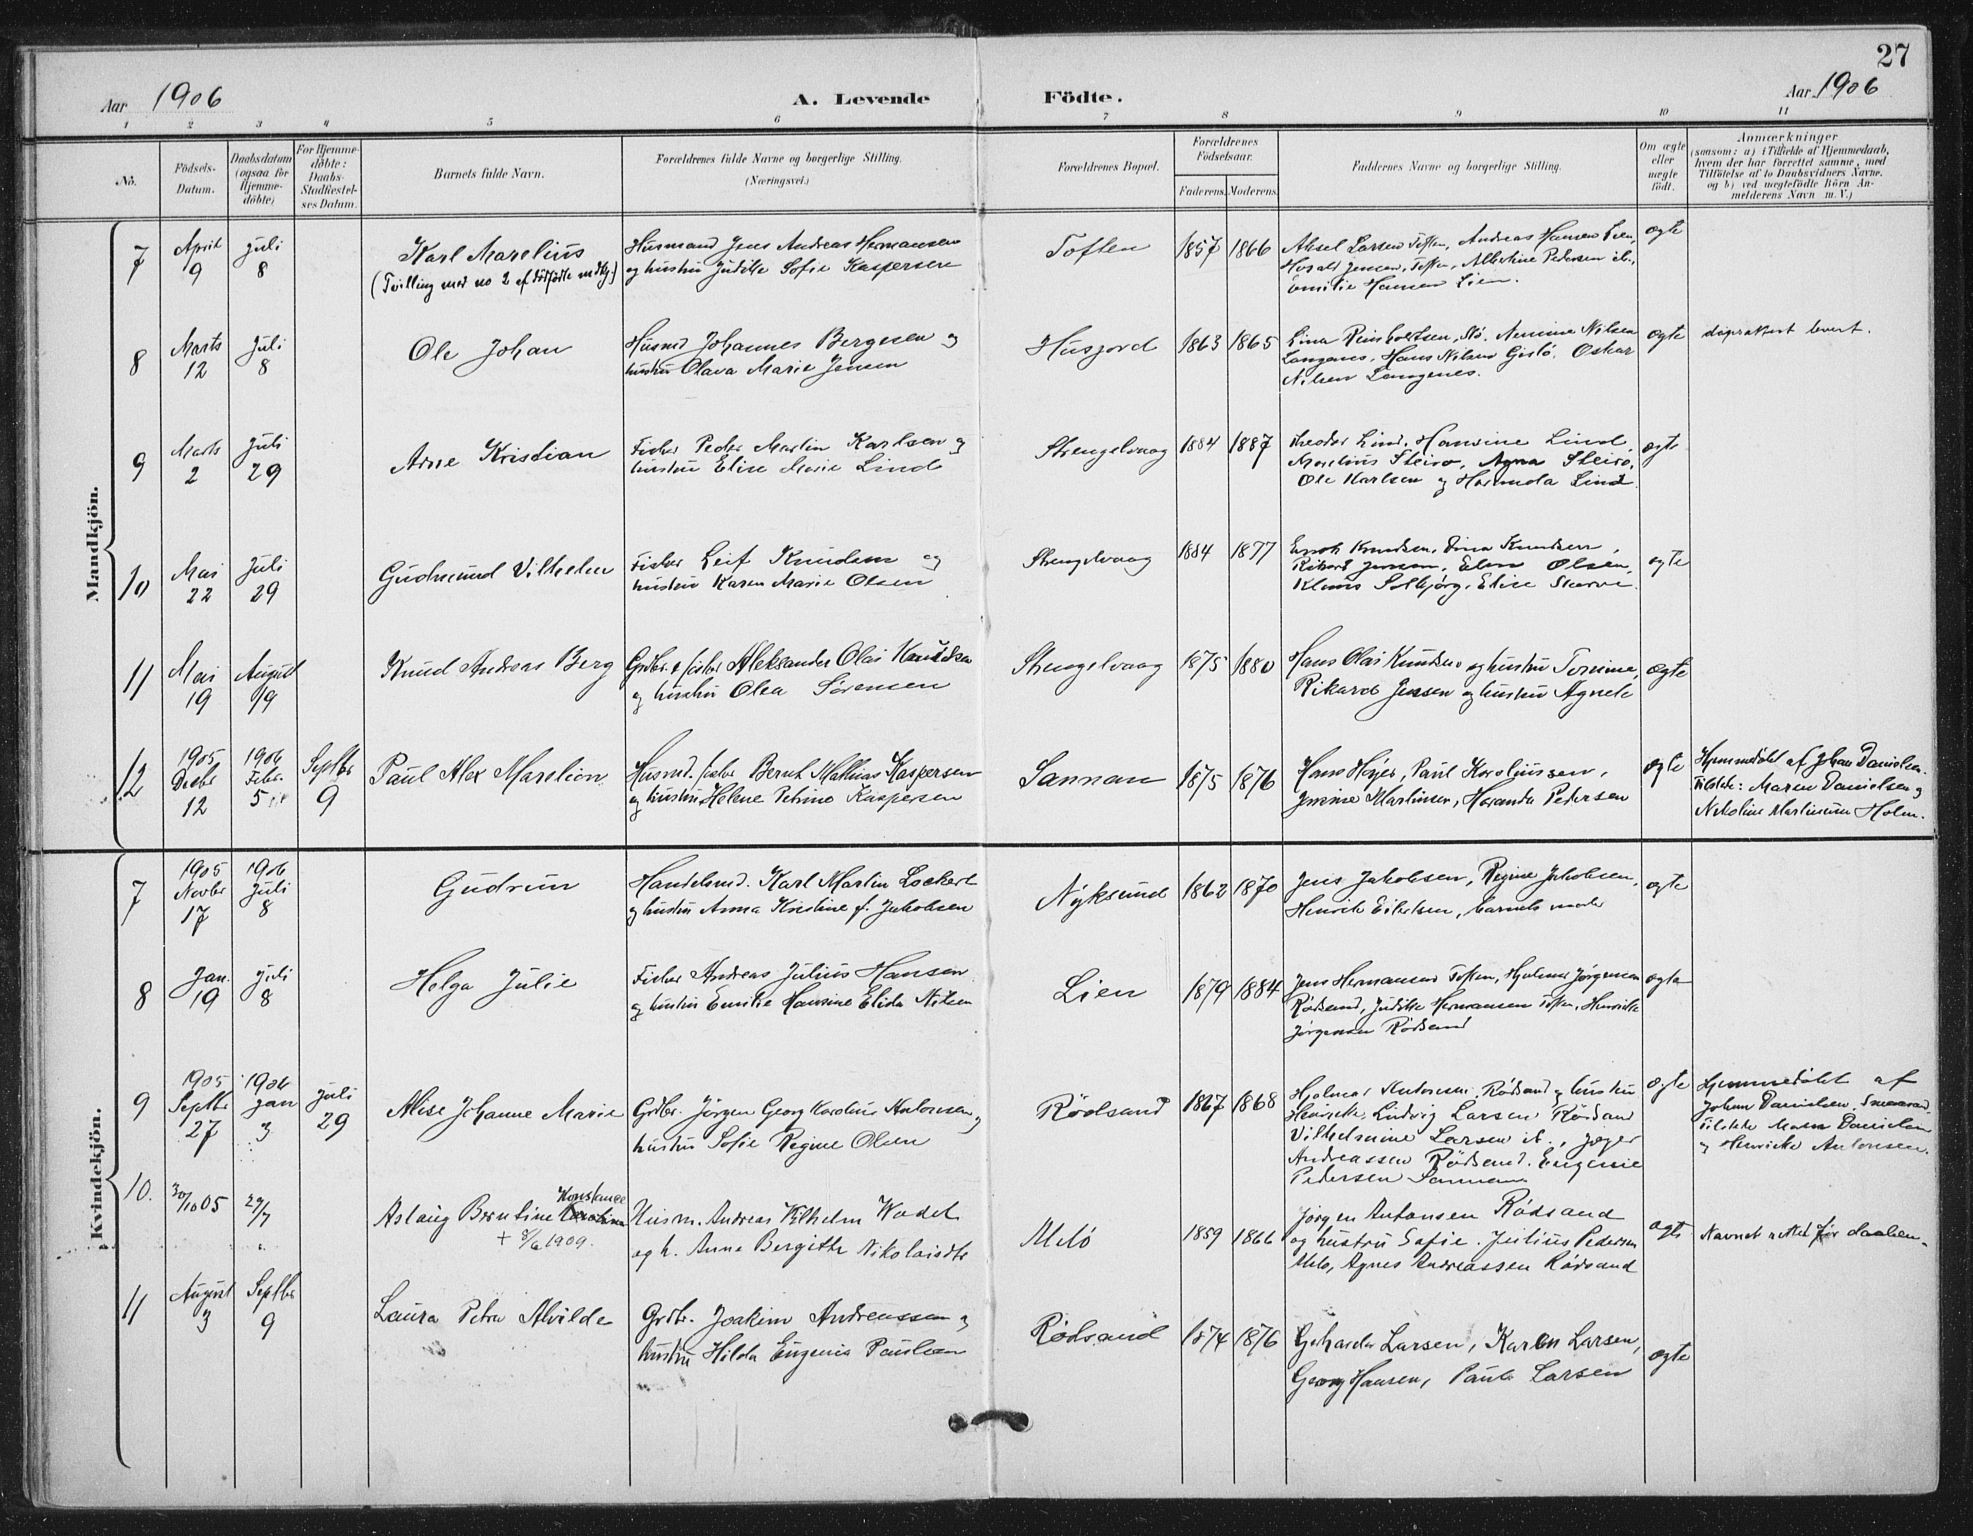 27
Aar 1906
A. Levende Födte.
Aar 1906
1 2 3 4 5 6 7 8 9 10 11
No.
Födsels-Datum.
Daabsdatum (ogsaa for Hjemme-döbte)
For Hjemme-döbte: Daabs-Stadfæstel-ses Datum.
Barnets fulde Navn.
Forældrenes fulde Navne og borgerlige Stilling. (Næringsvei.)
Forældrenes Bopæl.
Forældrenes Födselsaar.
Faderens. Moderens.
Faddernes Navne og borgerlige Stilling.
Om ægte eller uægte födt.
Anmærkninger
(saasom: a) i Tilfælde af Hjemmedaab, hvem der har forrettet samme, med Tilföielse af to Daabsvidners Navne. og b) ved uægtefödte Börn An-melderens Navn m. V.)
Mandkjön.
7 April 9 Juli 8
Karl Marelius
(Tvilling med no 2 af dødfødte mdkj.)
Husmand Jens Andreas Hermansen
og hustru Juditte Sofie Kaspersen
Toften 1857 1866
Aksel Larsen Toften, Andreas Hansen Lien,
Jensen, Toften, Albertine Pedersen ib.,
Emilie Hansen Lien.
ægte
8 Marts 12 Juli 8
Ole Johan
Husmd Johannes Bergesen og
hustru Olava Marie Jensen
Husjord 1863 1865
Lina Reinholdtsen, Stø. Nilsen
Langenes, Hans Nilsen Gislø. Oskar
Nilsen Langenes.
ægte
daapsattest levert.
9 Marts 2 Juli 29
Arne Kristian
Fisker Peder Martin Karlsen og
hustru Elise Marie Lind
Strengelvaag 1884 1887
Theodor Lind, Hansine Lind,
Marelius Steiro, Agna Steiro,
Ole Karlsen og Lind.
ægte
10 Mai 22 Juli 29
Gudmund Vilhelm
Fisker Leif Knudsen og
hustru Karen Marie Olsen
Strengelvaag 1884 1877
Enok Knudsen, Dina Knudsen,
Rikard Jensen, Elen Olsen,
Klaus Solbjørg, Elise Skarvi
ægte
11 Mai 19 August 19
Knud Andreas Berg
Grdbr. & fisker Aleksander Olai Knudsen
og hustru Olea Sørensen
Strengelvaag 1875 1880
Hans Olai Knudsen og hustru Tomine,
Rikard Jensen og hustru Agnete
ægte
12 1905 Decbr 12 1906 Febr. 5 Septbr 9
Paul Alex Marelion
Husmd. fisker Bernt Mathias Kaspersen
og hustru Helene Petrine Kaspersen
Sannan 1875 1876
Hans Høyer, Paul Karoliussen,
Martinsen, Pedersen
ægte
Hjemmedøbt af Johan Danielsen.
Tilstede: Maren Danielsen og
Nikoline Martinsen Holm.
Kvindekjön.
7 1905 Novbr 17 1906 Juli 8
Gudrun
Handelsmd. Karl Martin Lockert
og hustru Anna Kristine f. Jakobsen
Nyksund 1862 1870
Jens Jakobsen, Regine Jakobsen,
Henrik Eilertsen, barnets moder
ægte
8 Jan. 19 Juli 8
Helga Julie
Fisker Andreas Julius Hansen
og hustru Emilie Hansine Elida Nilsen
Lien 1879 1884
Jens Hermansen Toften, Hjalmar Jørgensen
Rødsand, Juditte Hermansen Toften, Henrikke
Jørgensen Rødsand
ægte
9 1905 Septbr 27 1906 Jan 3 Juli 29
Alise Johanne Marie
Grdbr. Jørgen Georg Karolius Antonsen og
hustru Sofie Regine Olsen
Rödsand 1867 1868
Hjalmar Antonsen, Rødsand og hustru
Henrikke, Ludvig Larsen Rødsand
Vilhelmine Larsen ib.,
Andreassen Rødsand. Eugenie
Pedersen Sannan
ægte
Hjemmedøbt af
Johan Danielsen,
Tilstede Maren Danielsen
og Henrikke Antonsen.
10. 30/10 05 29/7
Aslaug Berntine Konstance
+ 8/6 1909.
Husm. Andreas Vilhelm Wadel
og h. Anna Bergitte Nikolaisdtr
Melö 1859 1866
Jørgen Antonsen Rødsand
og hustru Sofie. Julius Pedersen
Melø, Agnes Andreassen Rødsand
ægte
Navnet rettet før daaben.
11 August 3 Septbr 9
Laura Petra Alvilde
Grdbr. Joakim Andreassen og
hustru Hilda Eugenia Paulsen
Rödsand 1874 1876
Gerharda Larsen, Karen Larsen,
Georg Hansen, Paul Larsen
ægte